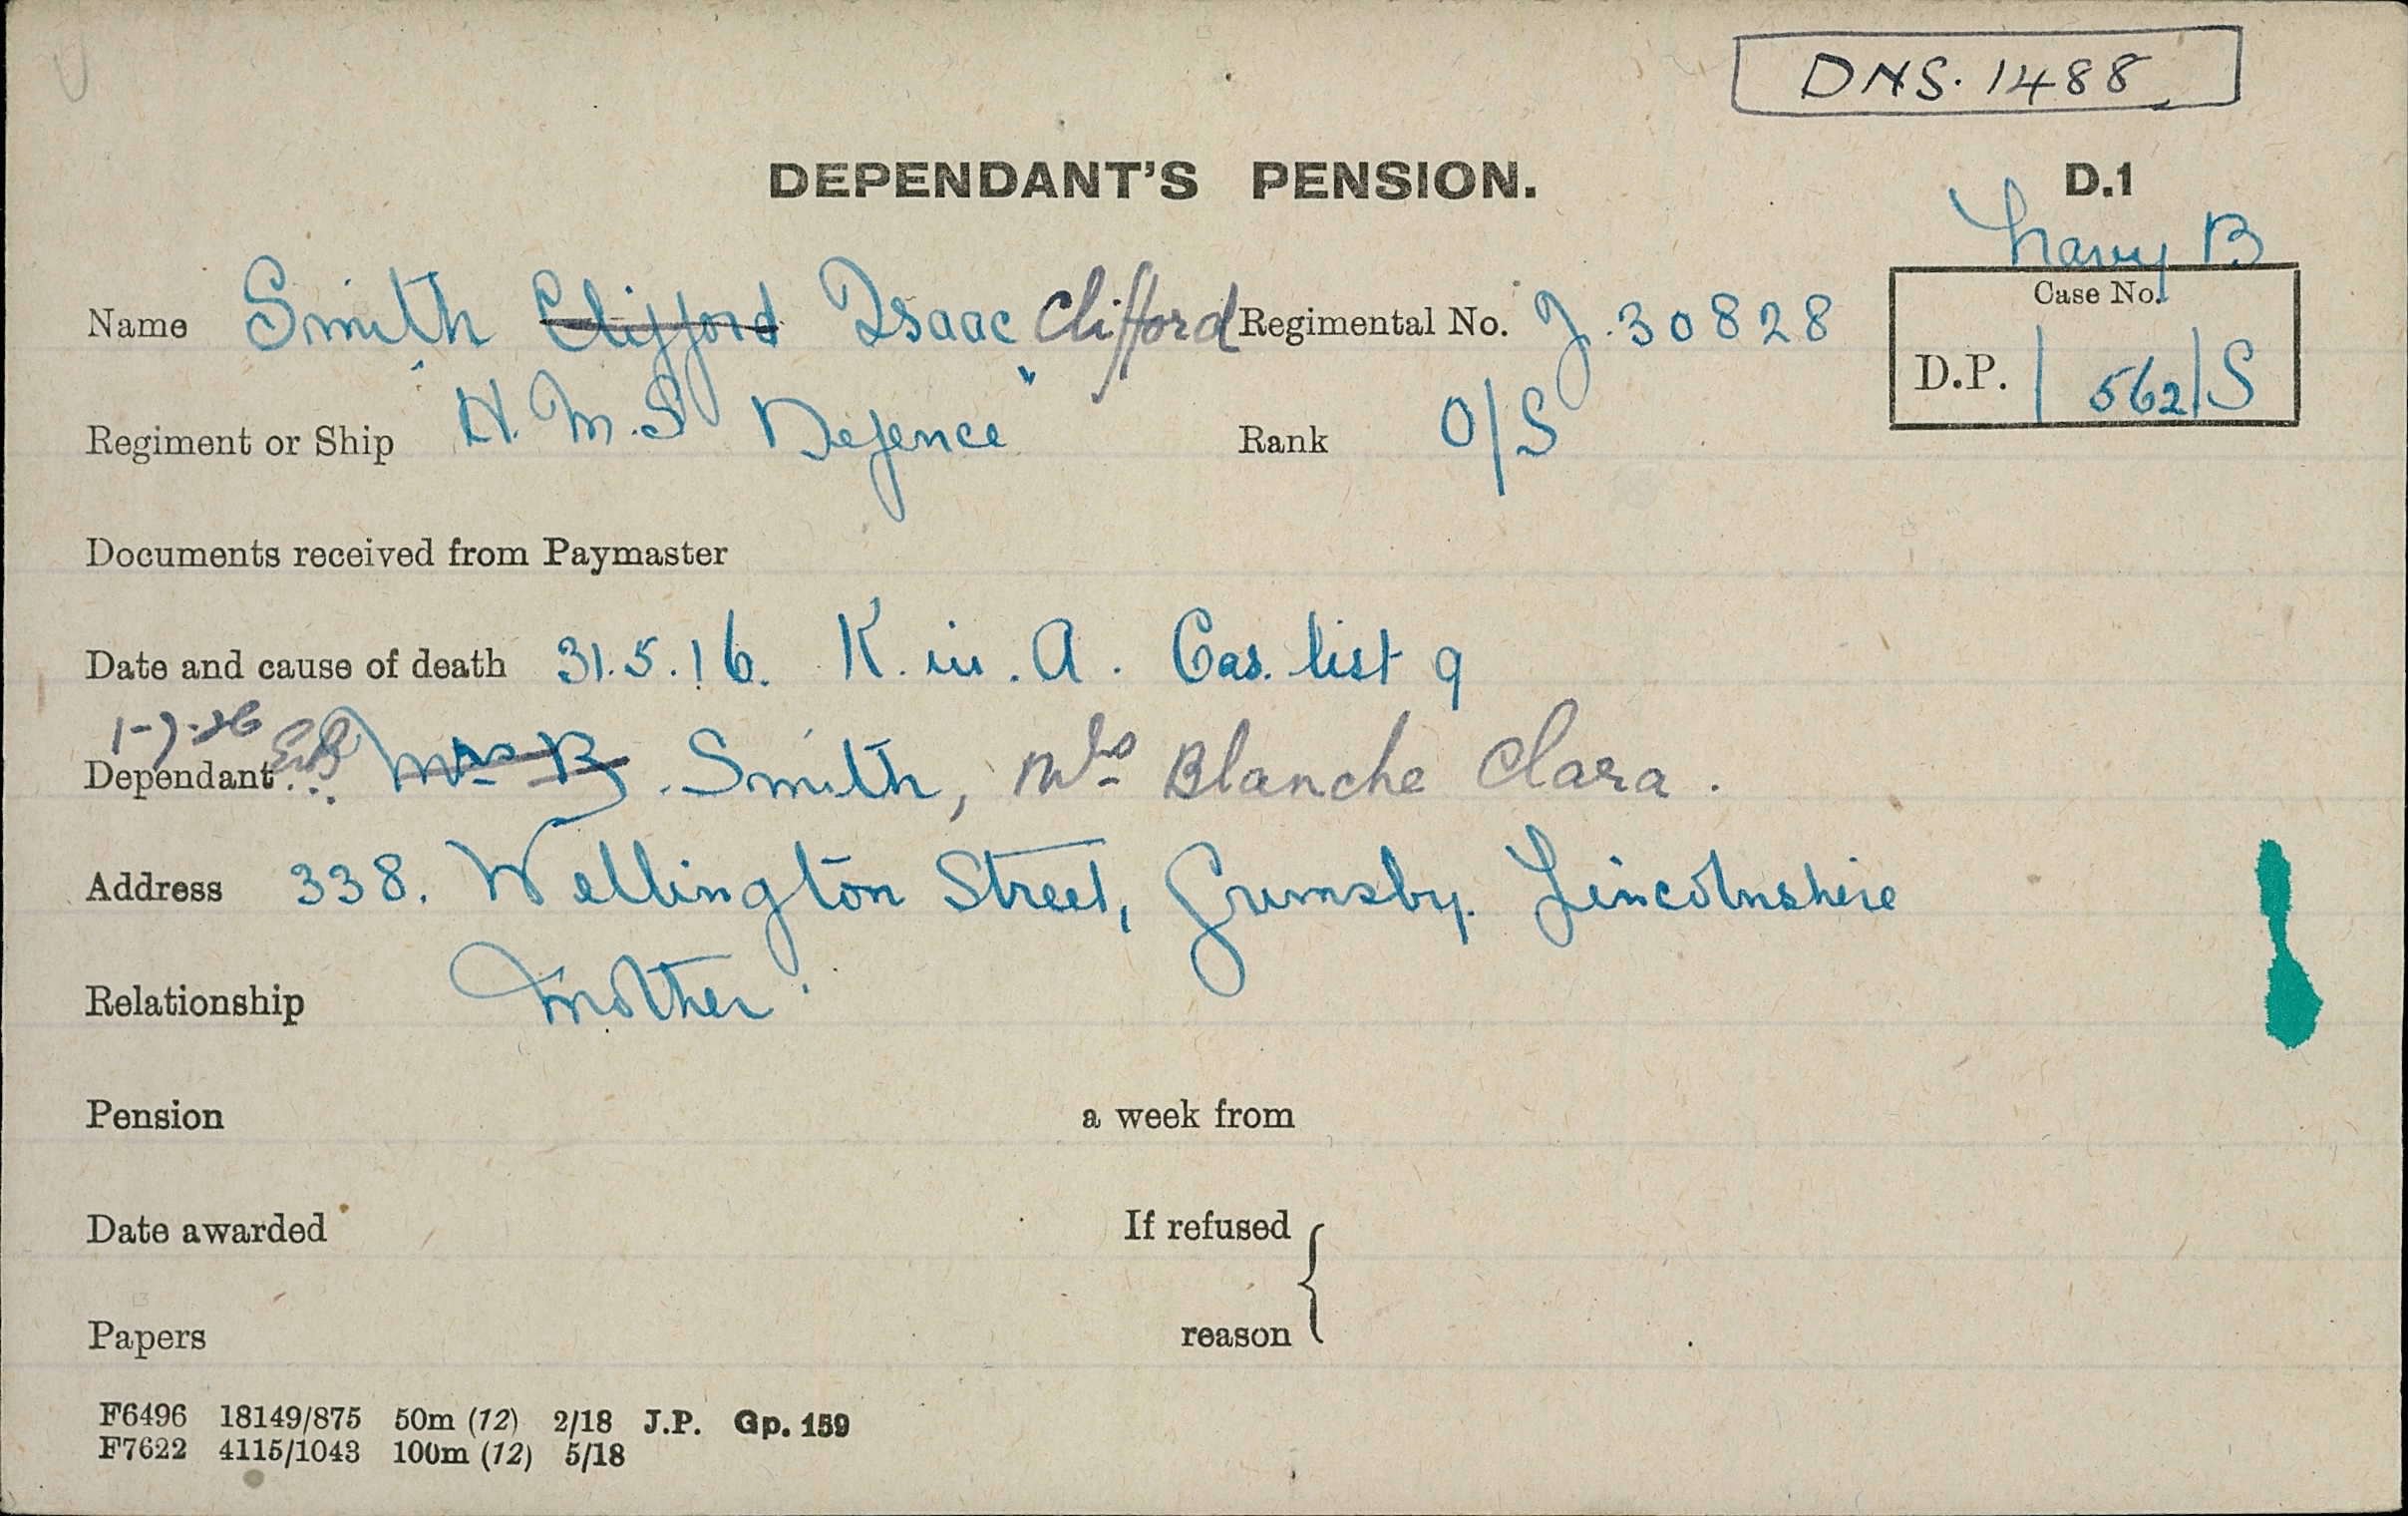 DNS. 1488
DEPENDANT'S PENSION. D.1
Navy B
Name Smith Clifford Isaac Clifford Regimental No. J. 30828
Case No.
D.P. | 562/S
Regiment or Ship "H.M.S Defence" Rank O/S
Documents received from Paymaster
Date and cause of death 31.5.16. K. in. A. Cas. list 9
Dependant Mrs B. Smith, Mrs Blanche Clara.
Address 338. Wellington Street, Grimsby. Lincolnshire
Relationship Mother.
Pension a week from
Date awarded If refused
Papers reason
F6496 18149/875 50m (12) 2/18 J.P. Gp. 159
F7622 4115/1043 100m (12) 5/18